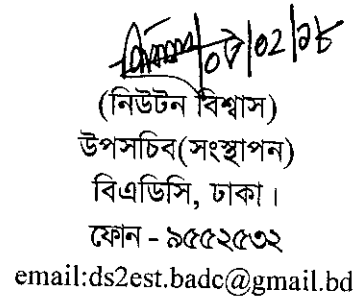 (নিউটন বিশ্বাস)
উপসচিব(সংস্থাপন)
বিএডিসি, ঢাকা।
ফোন - ৯৫৫২৫৩২
email:ds2est.badc@gmail.bd